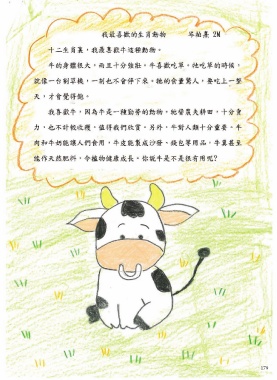 我最喜歡的生肖動物　　岑柏熹 2M
十二生肖裏，我最喜歡牛這種動物。
牛的身體很大，而且十分強壯。牛喜歡吃草，牠吃草的時候，
就像一台割草機，一刻也不會停下來。牠的食量驚人，要吃上一整
天，才會覺得飽。
我喜歡牛，因為牛是一種勤勞的動物，牠幫農夫耕田，十分賣
力，也不計較收穫，值得我們欣賞。另外，牛對人類十分重要。牛
肉和牛奶能讓人們食用，牛皮能製成沙發、錢包等用品，牛糞甚至
能作天然肥料，令植物健康成長。你說牛是不是很有用呢？
179